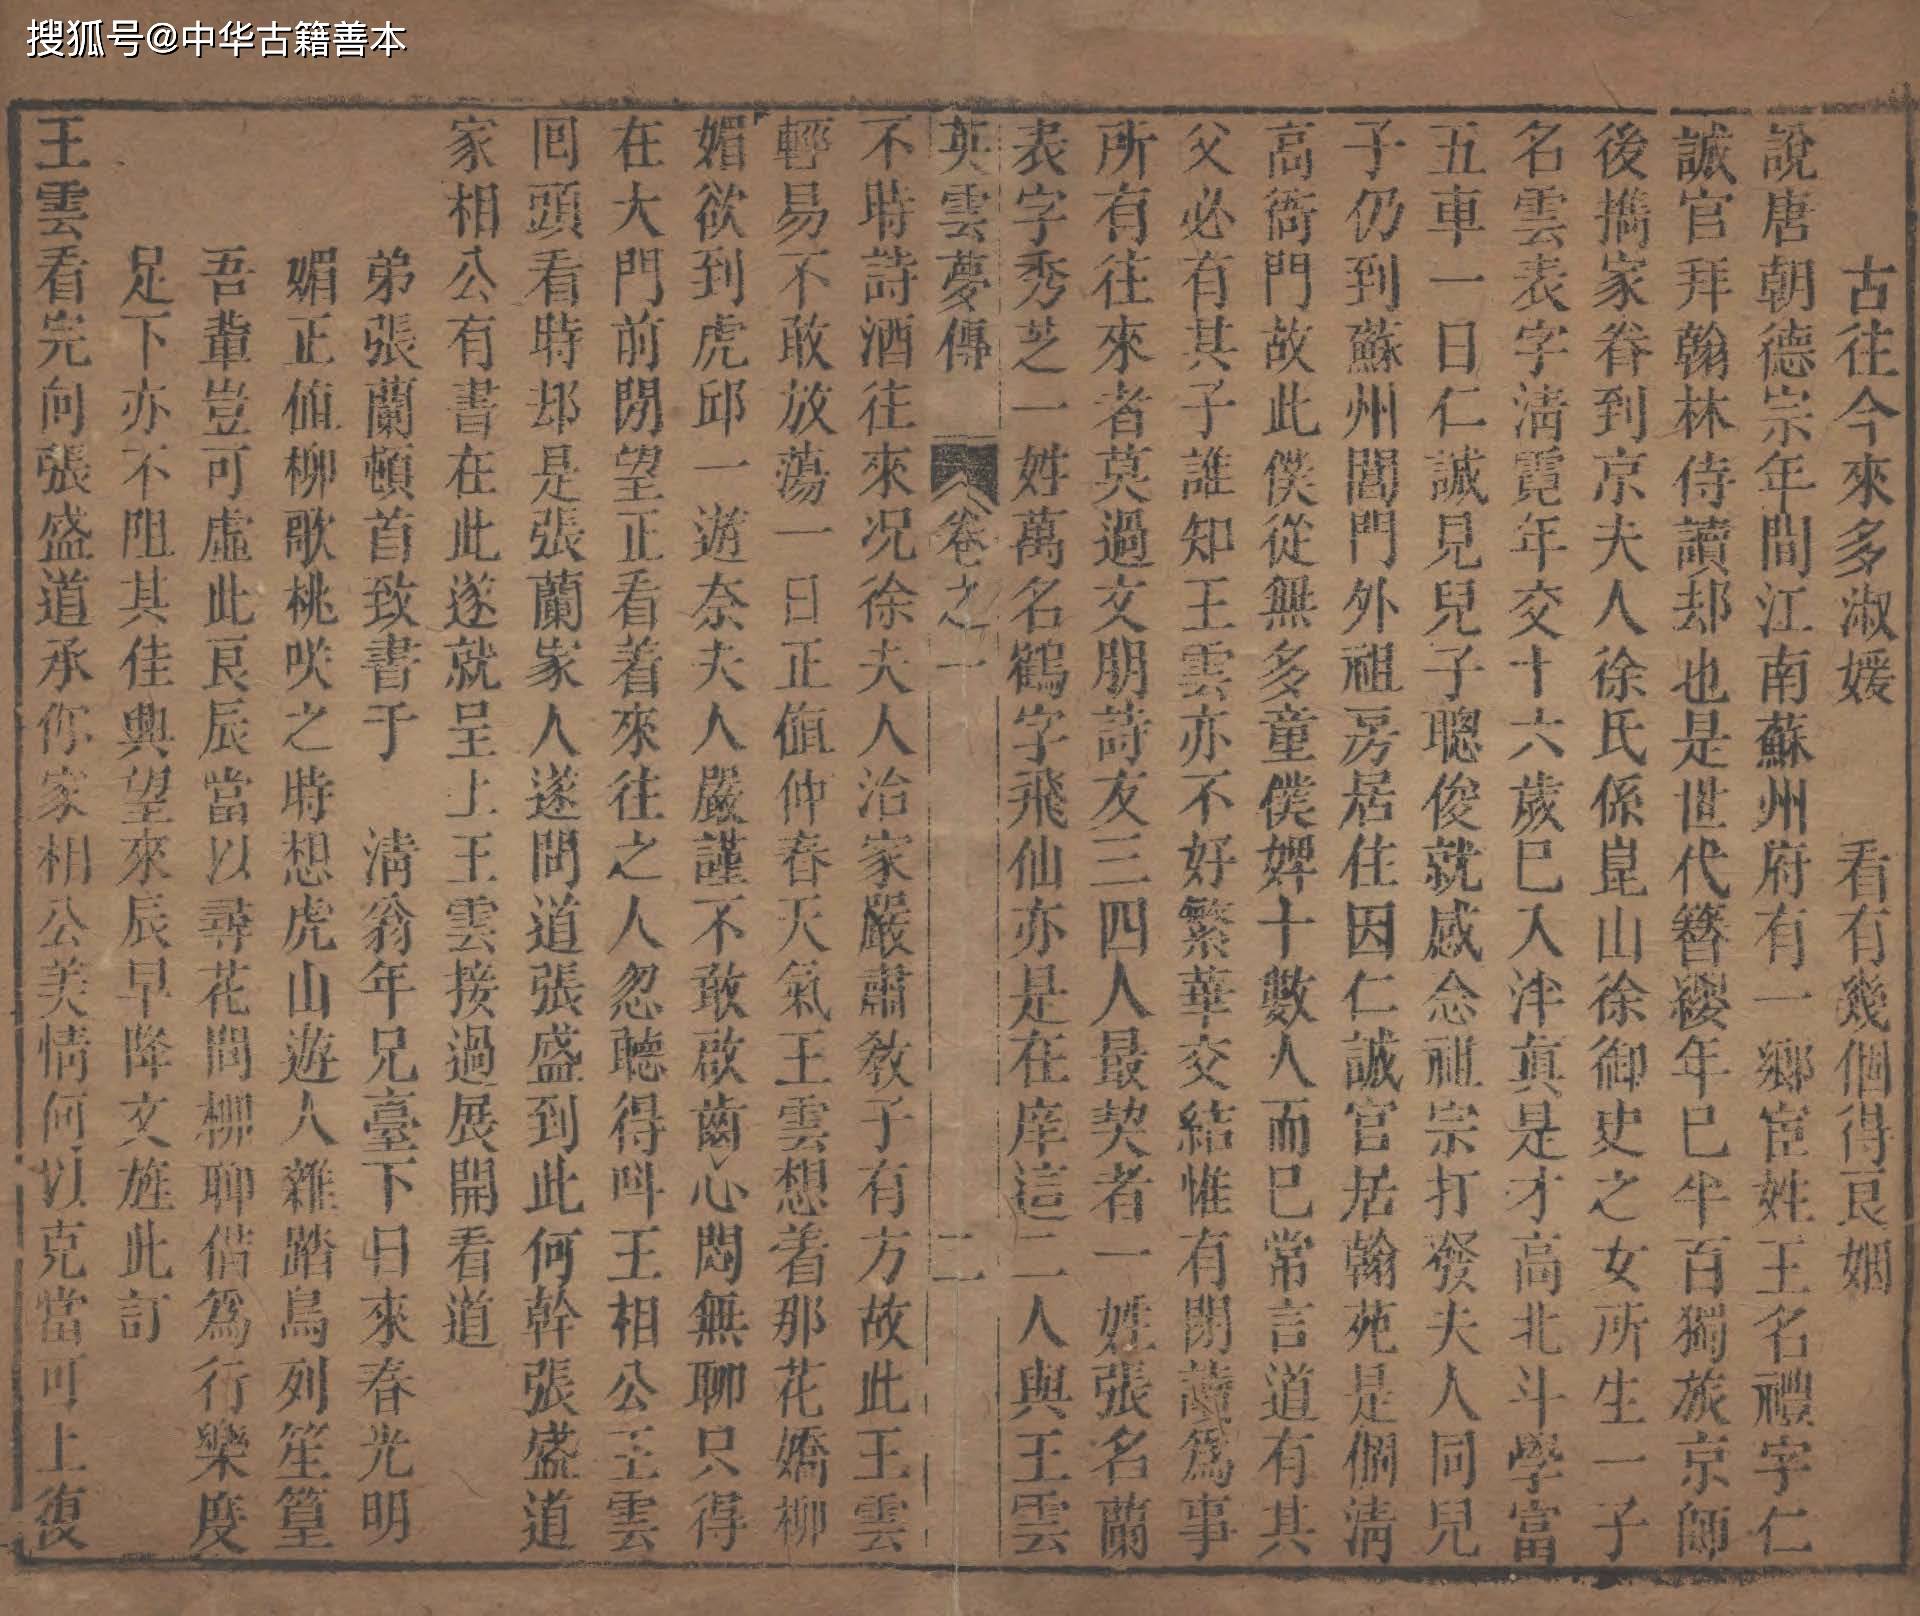 搜狐号@中华古籍善本
古往今來多淑媛　看有幾個得良姻
說唐朝德宗年間江南蘇州府有一鄉宦姓王名禮字仁
誠官拜翰林侍讀却也是世代簪纓年已半百獨旅京師
後擕家眷到京夫人徐氏係崑山徐御史之女所生一子
名雲表字淸霓年交十六歲已入泮真是才高北斗學富
五車一日仁誠見兒子聰俊就感念祖宗打發夫人同兒
子仍到蘇州閶門外祖房居住因仁誠官居翰苑是個淸
高衙門故此僕從無多童僕婢十數人而已常言道有其
父必有其子誰知王雲亦不好繁華交結惟有閉讀爲事
所有往來者莫過文朋詩友三四人最契者一姓張名蘭
表字秀芝一姓萬名鶴字飛仙亦是在庠這二人與王雲
英雲夢傳　卷之一　二
不時詩酒往來况徐夫人治家嚴肅敎子有方故此王雲
輕易不敢放蕩一日正值仲春天氣王雲想着那花嬌柳
媚欲到虎邱一遊奈夫人嚴謹不敢啟齒心悶無聊只得
在大門前閒望正看着來往之人忽聽得呌王相公王雲
囘頭看時却是張蘭家人遂問道張盛到此何幹張盛道
家相公有書在此遂就呈上王雲接過展開看道
弟張蘭頓首致書于　淸翁年兄臺下日來春光明
媚正值柳歌桃咲之時想虎山遊人雜踏鳥列笙篁
吾輩豈可虛此良辰當以尋花問柳聊偕爲行樂度
足下亦不阻其佳興望來辰早降文旌此訂
王雲看完向張盛道承你家相公美情何以克當可上復